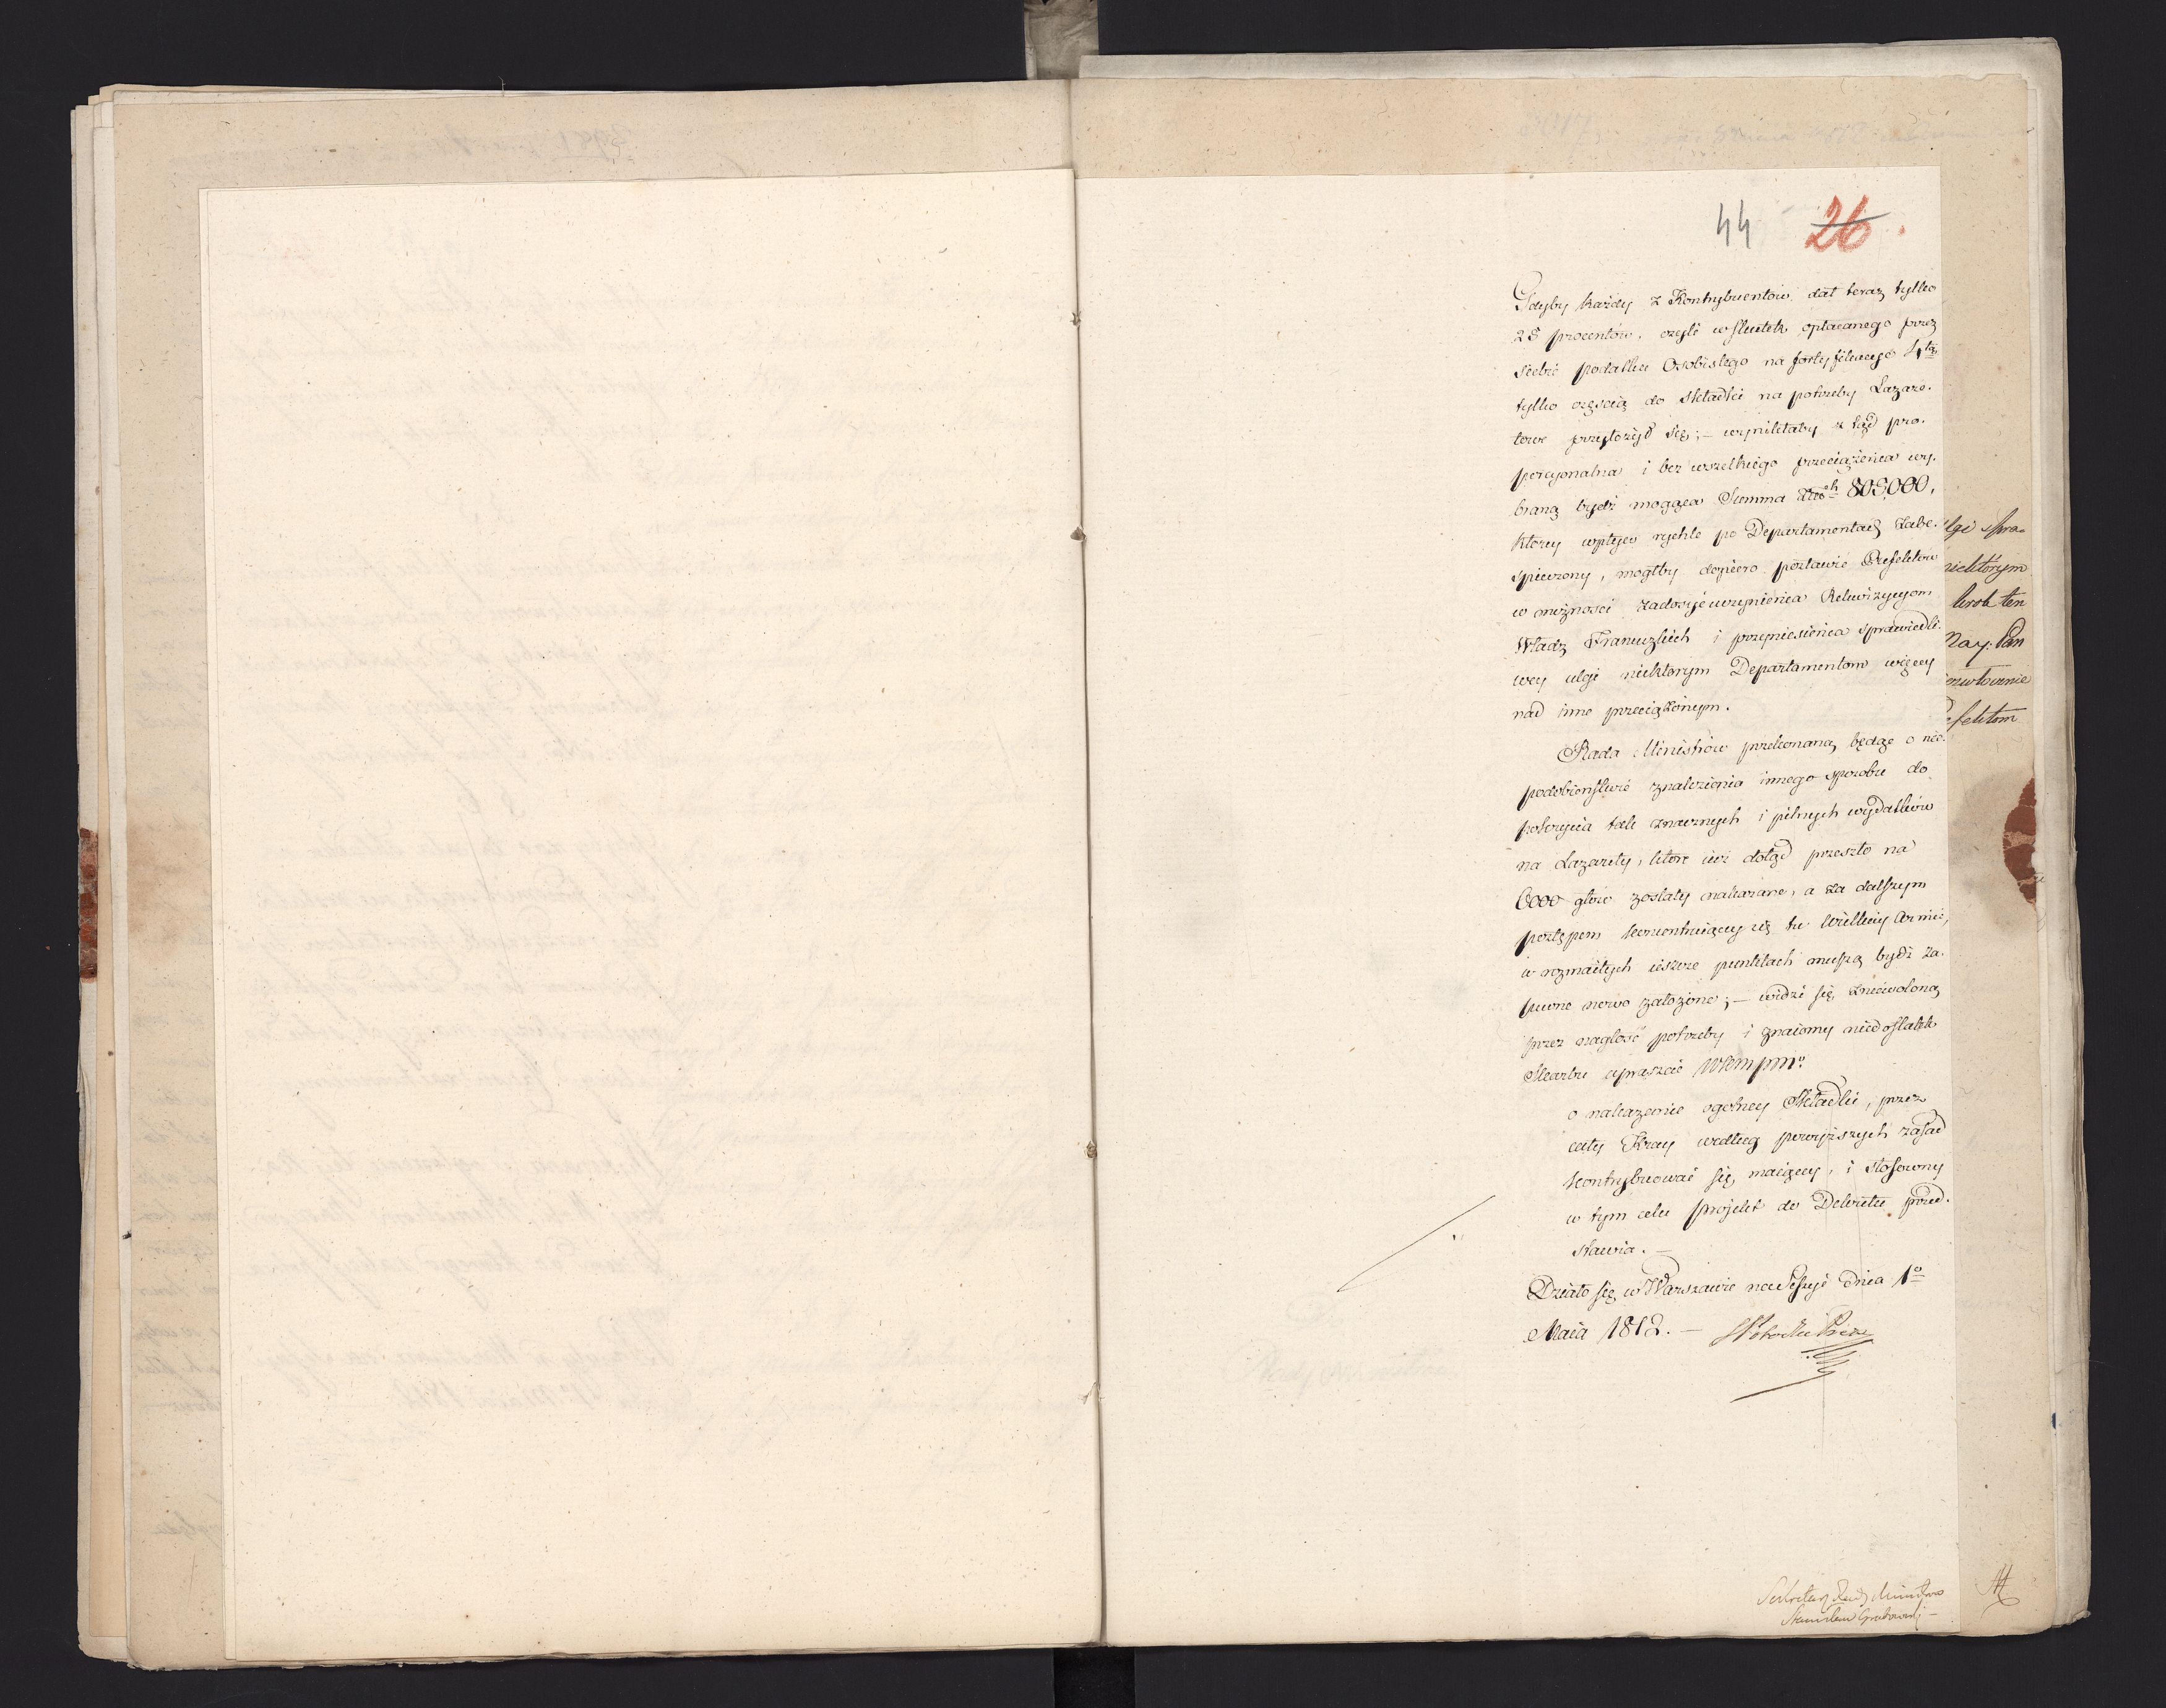 44 26.
Gdyby każdy z Kontrybuentów dał teraz tylko
25 procentów, czyli w skutek opłacanego przez
siebie podatku Osobistego na fortyfikacye 4tą
tylko częscią do składki na potrzeby Lazare-
towe przyłożył się; – wynikłaby z tąd pro-
porcyonalna i bez wszelkiego przeciążenia wy-
braną bydź mogąca Summa złoch 805000,
ktorey wpływ rychle po Departamentach zabe-
spieczony, mogłby dopiero postawić Prefektow
w możnosci zadosyć uczynienia Rekwizycyom
Władz Francuzkich i przyniesienia sprawiedli-
wey ulgi niektorym Departamentom więcey
nad inne przeciążonym.
Rada Ministrów przekonaną będąc o nie-
podobieństwie znalezienia innego sposobu do
pokrycia tak znacznych i pilnych wydatków
na Lazarety, które iuż dotąd przeszło na
6000 głów zostały nakazane, a za dalszym
postępem koncentruiącey się tu Wielkiey Armii,
w rozmaitych ieszcze punktach muszą bydź za-
pewne nowo założone; – widzi się zniewoloną
przez nagłość potrzeby i znaiomy niedostatek
Skarbu upraszać WKMPMo:
o nakazanie ogolney Składki, przez
cały Kray według powyższych zasad
kontrybuować się maiącey, i stosowny
w tym celu projekt do Dekretu przed-
stawia. –
Działo się w Warszawie na Sessyi dnia 1o
Maia 1812. – Potocki Prez
Sekretarz Rady Ministrów
Stanisław Grabowski –
ulgi spra-
niektórym
krok ten
Nay: Pan
Prefektom